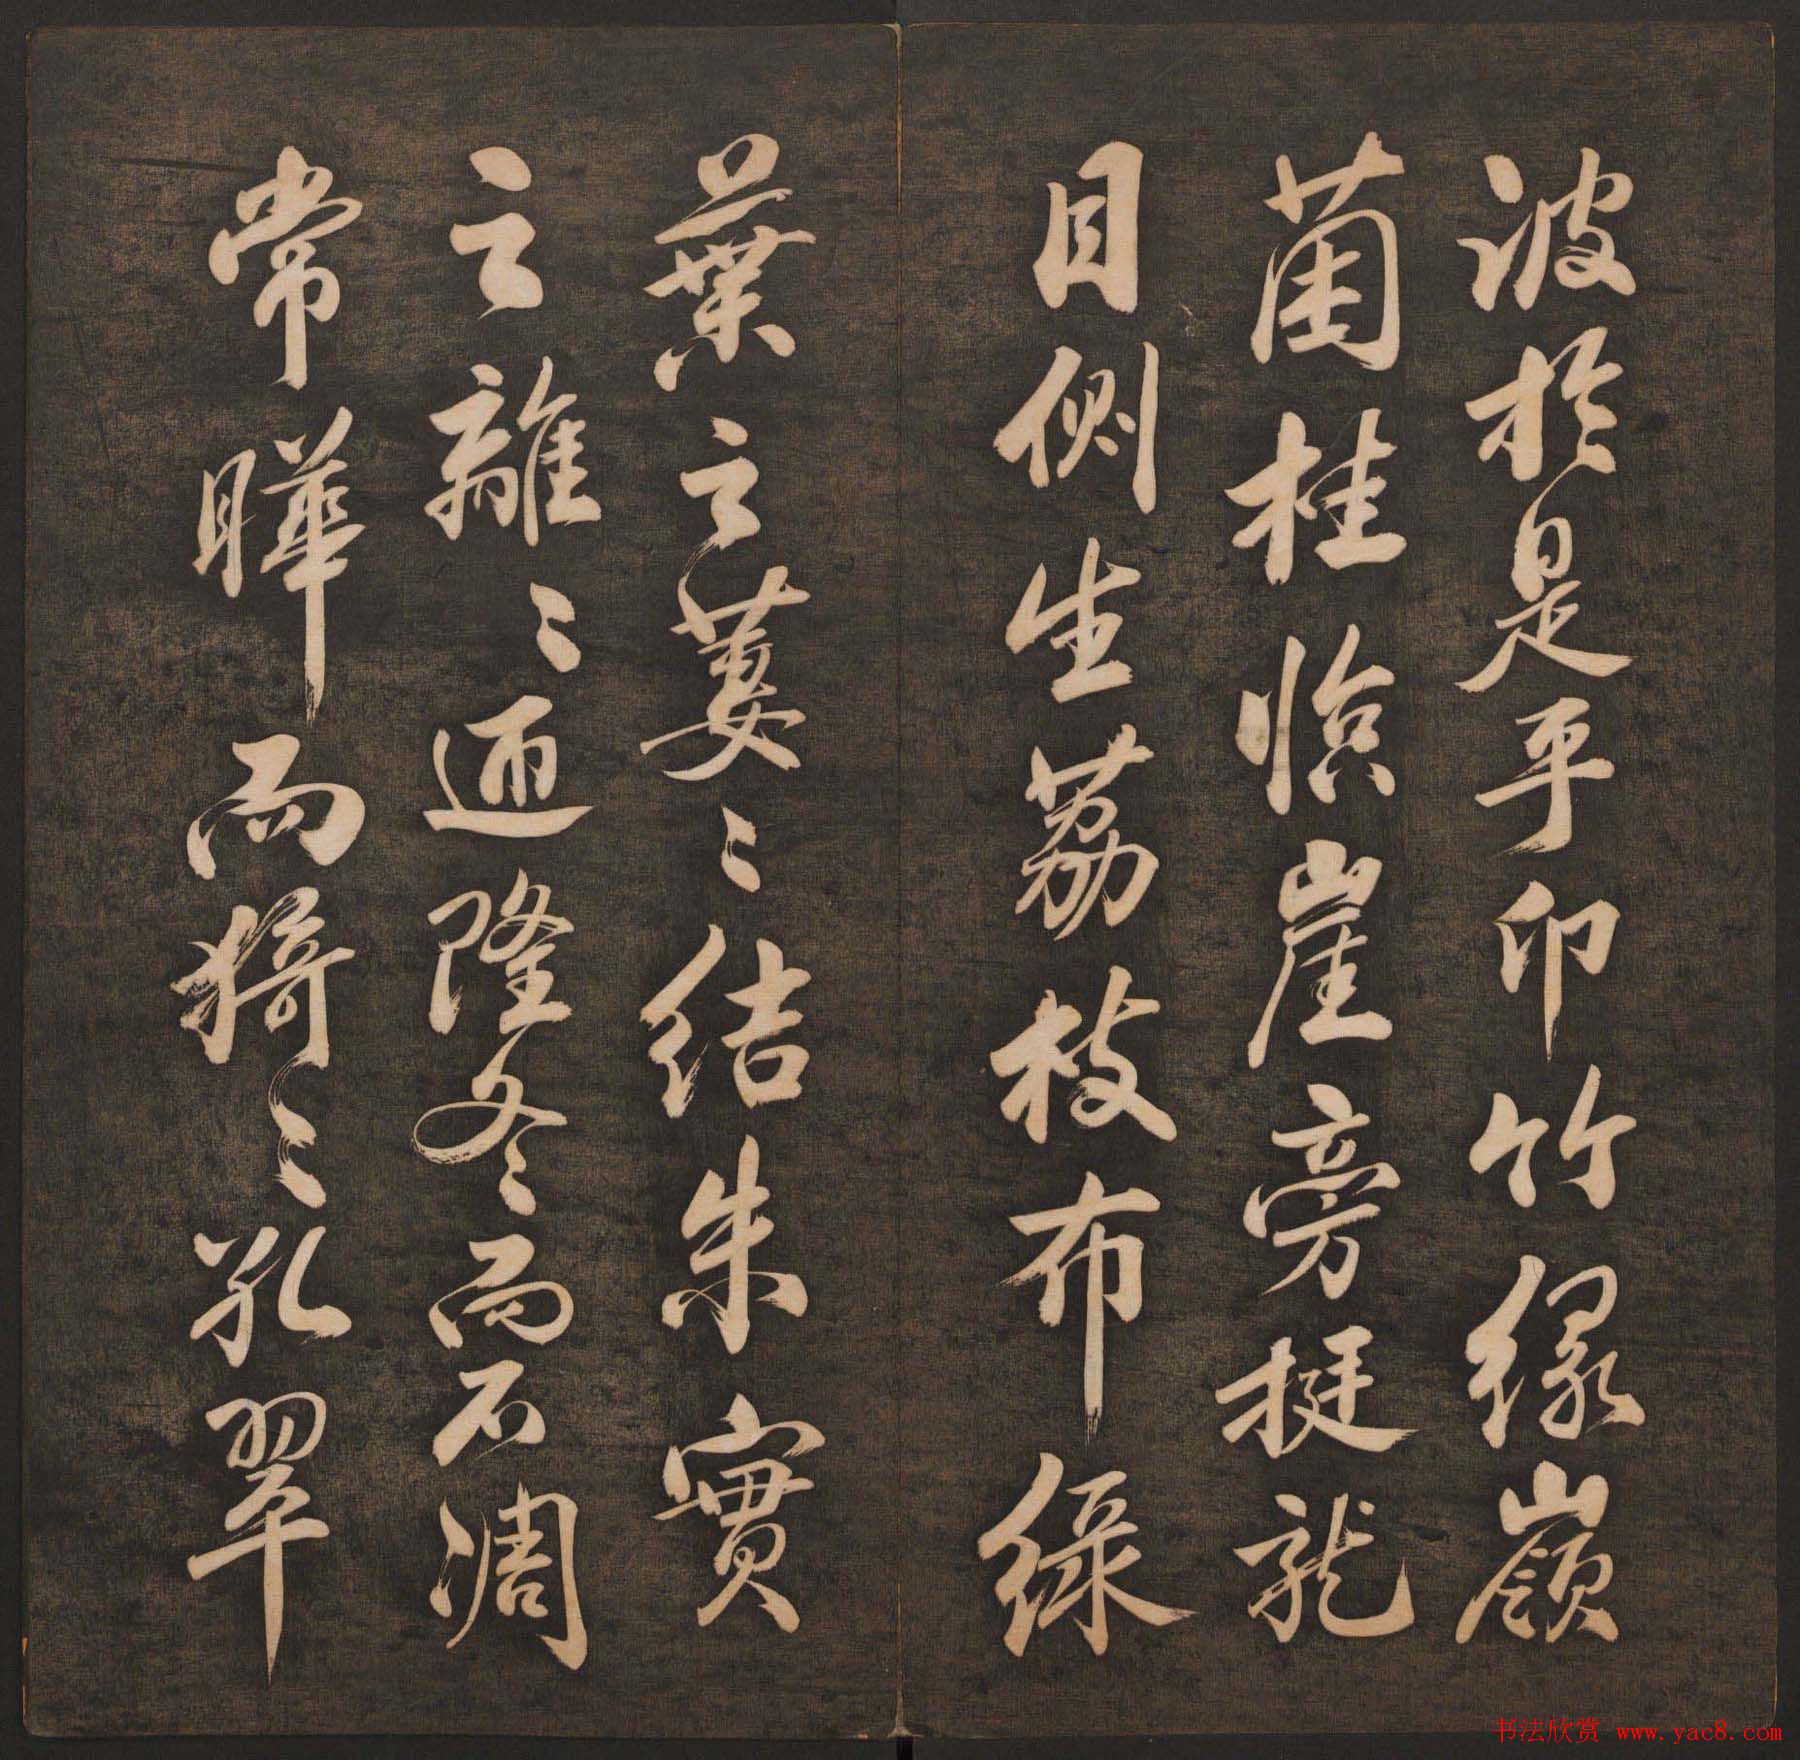 波於是乎卭竹縁嶺
菌桂臨崖旁挺龍
目側生荔枝布綠
葉之萋〻結朱實
之離〻迎隆冬而不凋
常曄而猗〻孔翠
书法欣赏 www.yac8.com